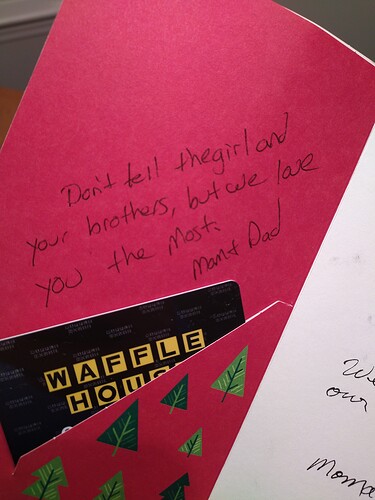 Don't tell thegirl and
your brothers, but we love
you the most.
Mom & Dad
WAFFLE
HOUSE
We
our